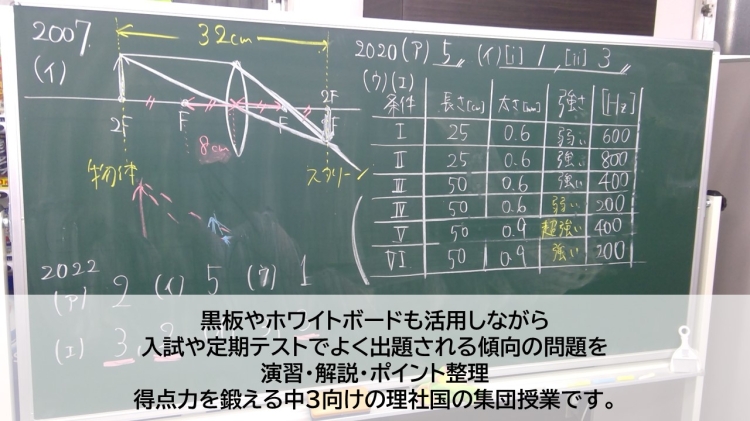 2007.
(イ)
32cm
2F
F
F
2F
8cm
物体
スクリーン
2020 (ア) 5 (イ)[i] 1, [ii] 3
(ウ)(エ)
条件 長さ[cm] 太さ[mm] 強さ [Hz]
I 25 0.6 弱い 600
II 25 0.6 強い 800
III 50 0.6 強い 400
IV 50 0.6 弱い 200
V 50 0.9 超強い 400
VI 50 0.9 強い 200
2022
(ア) 2 (イ) 5 (ウ) 1
(エ) 3,
黒板やホワイトボードも活用しながら
入試や定期テストでよく出題される傾向の問題を
演習・解説・ポイント整理
得点力を鍛える中3向けの理社国の集団授業です。